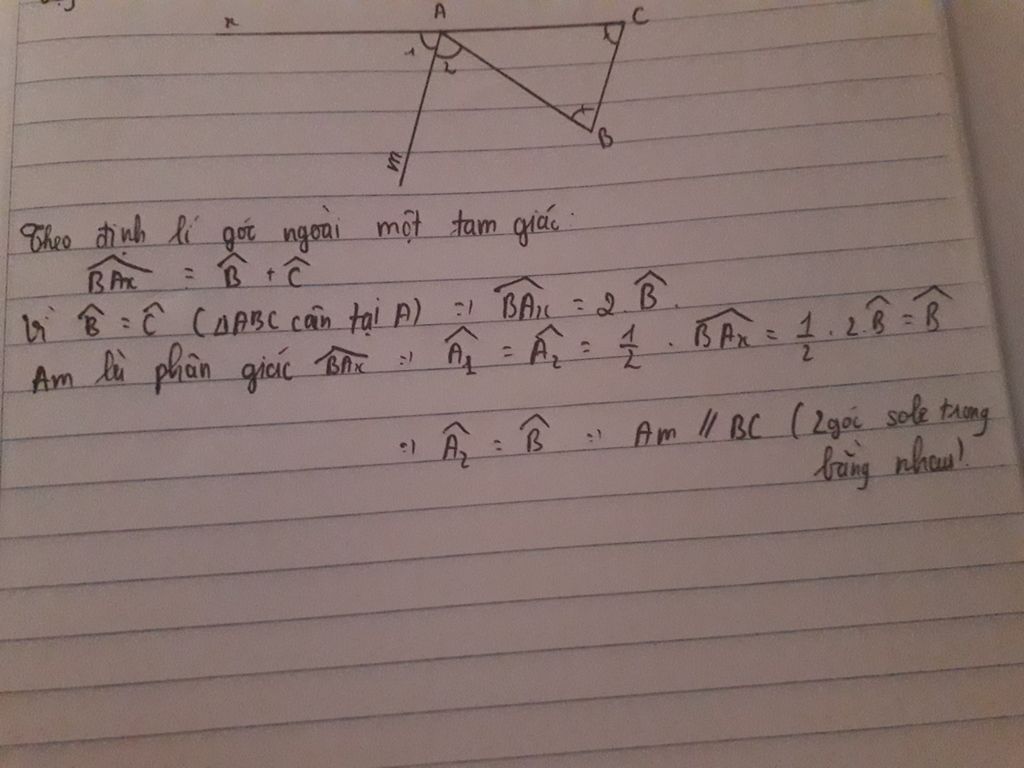 x A C
1 2
B
m
Theo định lí góc ngoài một tam giác:
\widehat{BAx} = \widehat{B} + \widehat{C}
Vì \widehat{B} = \widehat{C} (ΔABC cân tại A) => \widehat{BAx} = 2.\widehat{B}.
Am là phân giác \widehat{BAx} => \widehat{A_1} = \widehat{A_2} = \frac{1}{2} . \widehat{BAx} = \frac{1}{2} . 2.\widehat{B} = \widehat{B}
=> \widehat{A_2} = \widehat{B} => Am // BC (2 góc sole trong
bằng nhau).